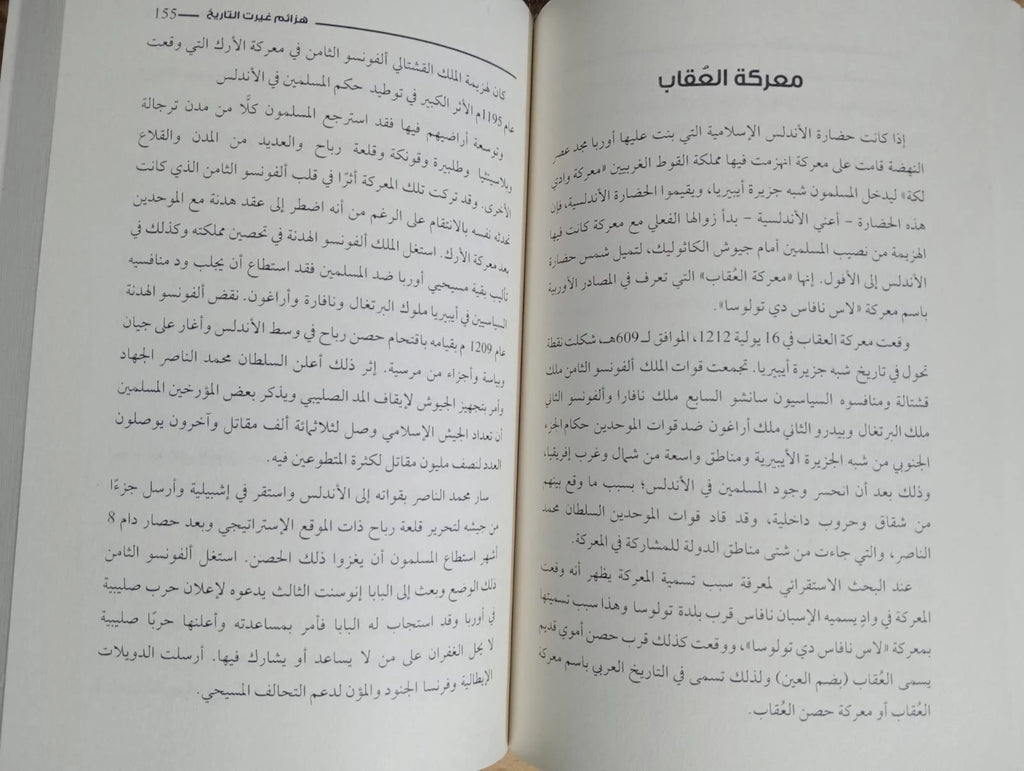 معركة العُقاب
إذا كانت حضارة الأندلس الإسلامية التي بنت عليها أوربا مجد عصر
النهضة قامت على معركة انهزمت فيها مملكة القوط الغربيين «معركة وادي
لكة» ليدخل المسلمون شبه جزيرة أيبيريا، ويقيموا الحضارة الأندلسية، فإن
هذه الحضارة - أعني الأندلسية - بدأ زوالها الفعلي مع معركة كانت فيها
الهزيمة من نصيب المسلمين أمام جيوش الكاثوليك، لتميل شمس حضارة
الأندلس إلى الأفول. إنها «معركة العُقاب» التي تعرف في المصادر الأوربية
باسم معركة «لاس نافاس دي تولوسا».
وقعت معركة العقاب في 16 يولية 1212، الموافق لـ 609هـ، شكلت نقطة
تحول في تاريخ شبه جزيرة أيبيريا. تجمعت قوات الملك ألفونسو الثامن ملك
قشتالة ومنافسوه السياسيون سانشو السابع ملك نافارا وألفونسو الثاني
ملك البرتغال وبيدرو الثاني ملك أراغون ضد قوات الموحدين حكام الجزء
الجنوبي من شبه الجزيرة الأيبيرية ومناطق واسعة من شمال وغرب إفريقيا،
وذلك بعد أن انحسر وجود المسلمين في الأندلس؛ بسبب ما وقع بينهم
من شقاق وحروب داخلية، وقد قاد قوات الموحدين السلطان محمد
الناصر، والتي جاءت من شتى مناطق الدولة للمشاركة في المعركة.
عند البحث الاستقرائي لمعرفة سبب تسمية المعركة يظهر أنه وقعت
المعركة في وادٍ يسميه الإسبان نافاس قرب بلدة تولوسا وهذا سبب تسميتها
بمعركة «لاس نافاس دي تولوسا»، ووقعت كذلك قرب حصن أموي قديم
يسمى العُقاب (بضم العين) ولذلك تسمى في التاريخ العربي باسم معركة
العُقاب أو معركة حصن العُقاب.
هزائم غيرت التاريخ 155
كان لهزيمة الملك القشتالي ألفونسو الثامن في معركة الأرك التي وقعت
عام 1195م الأثر الكبير في توطيد حكم المسلمين في الأندلس
وتوسعة أراضيهم فيها فقد استرجع المسلمون كلًّا من مدن ترجالة
وبلاسينثيا وطلبيرة وقونكة وقلعة رباح والعديد من المدن والقلاع
الأخرى. وقد تركت تلك المعركة أثرًا في قلب ألفونسو الثامن الذي كانت
تحدثه نفسه بالانتقام على الرغم من أنه اضطر إلى عقد هدنة مع الموحدين
بعد معركة الأرك. استغل الملك ألفونسو الهدنة في تحصين مملكته وكذلك في
تأليب بقية مسيحيي أوربا ضد المسلمين فقد استطاع أن يجلب ود منافسيه
السياسيين في أيبيريا ملوك البرتغال ونافارة وأراغون. نقض ألفونسو الهدنة
عام 1209 م بقيامه باقتحام حصن رباح في وسط الأندلس وأغار على جيان
وبياسة وأجزاء من مرسية. إثر ذلك أعلن السلطان محمد الناصر الجهاد
وأمر بتجهيز الجيوش لإيقاف المد الصليبي ويذكر بعض المؤرخين المسلمين
أن تعداد الجيش الإسلامي وصل لثلاثمائة ألف مقاتل وآخرون يوصلون
العدد لنصف مليون مقاتل لكثرة المتطوعين فيه.
سار محمد الناصر بقواته إلى الأندلس واستقر في إشبيلية وأرسل جزءًا
من جيشه لتحرير قلعة رباح ذات الموقع الإستراتيجي وبعد حصار دام 8
أشهر استطاع المسلمون أن يغزوا ذلك الحصن. استغل ألفونسو الثامن
ذلك الوضع وبعث إلى البابا إنوسنت الثالث يدعوه لإعلان حرب صليبية
في أوربا وقد استجاب له البابا فأمر بمساعدته وأعلنها حربًا صليبية
لا يحل الغفران على من لا يساعد أو يشارك فيها. أرسلت الدويلات
الإيطالية وفرنسا الجنود والمؤن لدعم التحالف المسيحي.